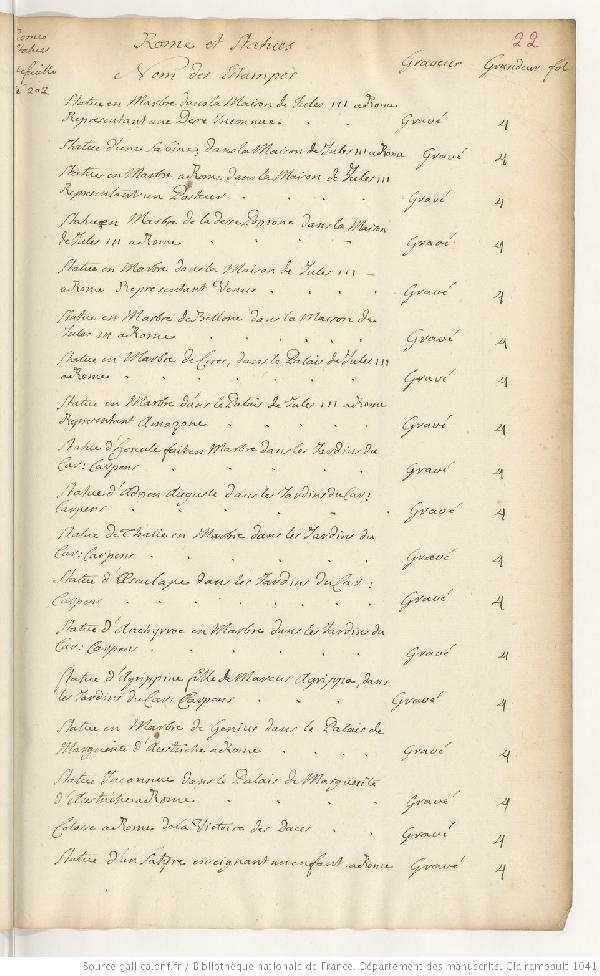 Rome
Statues
22
Rome et Statues
Nom des Estampes
Graveur Grandeur fol
Statue en Marbre dans la Maison de Jules III a Rome
Representant une Deesse Inconnue . . Gravé 4
Statue d'une Sabine, dans la Maison de Jules III a Rome Gravé 4
Statue en Marbre a Rome dans la Maison de Jules III
Representant un Pasteur . . . . Gravé 4
Statue en Marbre de la deesse Pomone dans la Maison
de Jules III a Rome . . . . Gravé 4
Statue en Marbre dans la Maison de Jules III
a Rome Representant Venus . . . Gravé 4
Statue en Marbre de Bellone dans la Maison de
Jules III a Rome . . . . . Gravé 4
Statue en Marbre de Ceres, dans le Palais de Jules III
a Rome . . . . . . . Gravé 4
Statue en Marbre dans le Palais de Jules III a Rome
Representant Amazone . . . . Gravé 4
Statue d'Hercule fait en Marbre dans les Jardins du
Car: Carpens . . . . . . Gravé 4
Statue d'Adrien Auguste dans les Jardins du Car:
Carpens . . . . . . . Gravé 4
Statue de Thalie en Marbre dans les Jardins du
Car: Carpens . . . . . . Gravé 4
Statue d'Esculape dans les Jardins du Car:
Carpens . . . . . . . Gravé 4
Statue d'Anchyrroe en Marbre dans les Jardins du
Car: Carpens . . . . . . Gravé 4
Statue d'Agrippine fille de Marcus Agrippa, dans
les Jardins du Car: Carpens . . . . Gravé 4
Statue en Marbre de Genius dans le Palais de
Marguerite d'Austriche a Rome . . . Gravé 4
Statue Inconnue dans le Palais de Marguerite
d'Austriche a Rome . . . . . Gravé 4
Colosse a Rome de la Victoire des Daces . . Gravé 4
Statue d'un Satyre enseignant un enfant a Rome Gravé 4
Source gallica.bnf.fr / Bibliothèque nationale de France. Département des manuscrits. Clairambault 1041